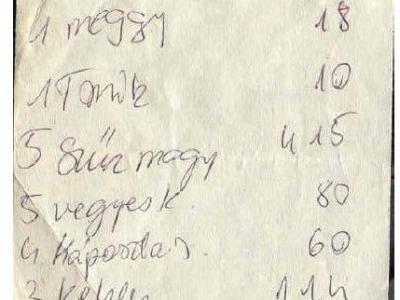 1 meggy 18
1 Tonik 10
5 Szür magy 415
5 vegyes k. 80
4 Káposztás. 60
3 114